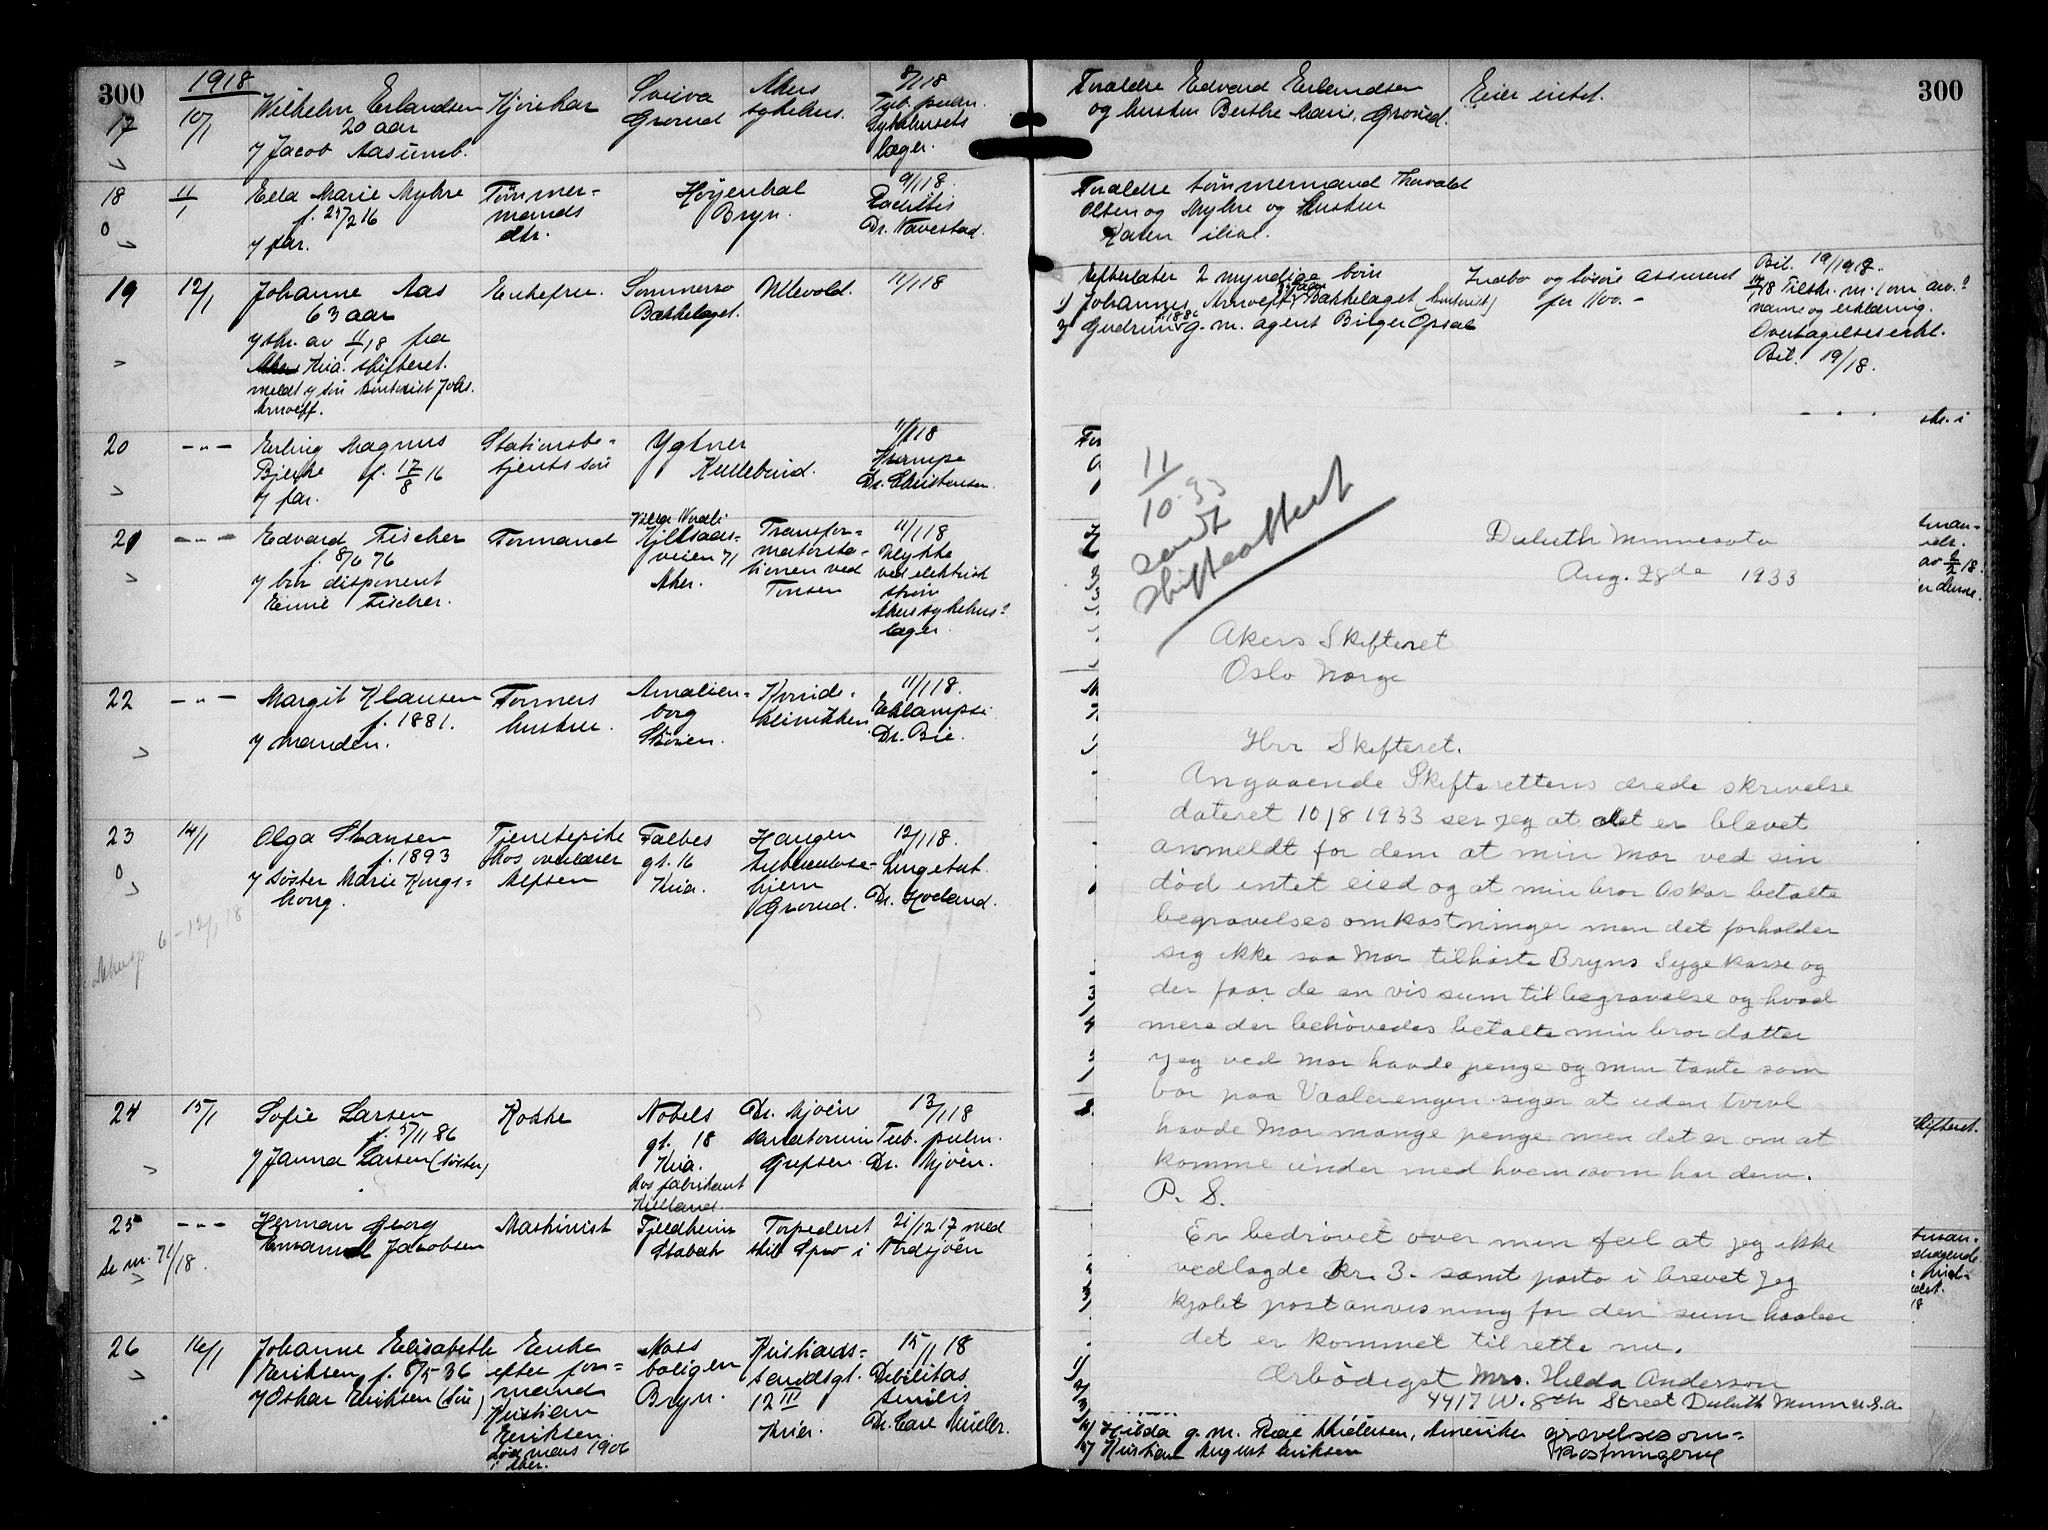 300
1918
17
10/1
Wilhelm Erlandsen
20 aar
Jacob Aasumb.
Sveiva
Grorud
Akers
sykehus.
8/1 18
Tub. pulm.
Sykehusets
læger.
18
0
11/1
Ella Marie Myhre
f. 25/2 16
y far.
Tømmer-
mands
dtr.
Høyenhal
Bryn.
9/1 18.
Rachitis
Dr. Navestad.
19
12/1
Johanne Aas
63 aar
y skr. av 11/1 18 fra
Kria. skifteret.
meldt y søn Johs.
Arnoeff.
Enkefru.
Sommerro
Bækkelaget.
Ullevold.
11/1 18
20
- " -
Erling Magnus
Bjerke f. 17/8 16
y far.
Stationsbe-
tjents søn
Kullebund.
11/1 18
Krampe
Dr. Christensen.
21
- " -
Edvard Fischer
f. 8/6 76
y bror disponent
Fischer.
Formand
Villa
Kjelsaas-
veien 71
Aker.
Transfor-
matorsta-
tionen ved
Tonsen
11/1 18
Ulykke
ved elektrisk
strøm
Akers sykehus
læger.
22
- " -
Margit Klausen
f. 1881.
y manden.
Formers
hustru.
Amalien-
borg
Kvinde-
klinikken
11/1 18.
Eklampsi
Dr. Bie.
23
0
14/1
Olga Hansen
f. 1893
y søster Marie Kongs-
houg.
Tjenestepike
hos overlærer
Alfsen
Falbes
gt. 16
Kria.
Haugen
tuberkulose-
hjem
Grorud.
12/1 18.
Lungetub.
Dr. Hovland.
6 - 12/1 18
24
15/1
Sofie Larsen
f. 5/11 86
y Janna Larsen (søster)
Kokke
Nobels
gt. 18
Kria.
hos fabrikant
Kielland
Dr. Mjøen
sanatorium
Grefsen.
13/1 18
Tub. pulm.
Dr. Mjøen.
25
Se nr. 71/18.
- " -
Herman Georg
Emanuel Jacobsen
Maskinist
Fjeldheim
Stabæk
Torpederet
i Nordsjøen
21/12 17 med
26
16/1
Johanne Elisabeth
Eriksen f. 8/5 36
y Oskar Eriksen (søn)
Enke
efter for-
mand
Kristian
Eriksen.
død mars 1906
i Aker.
Moss
boligen
Bryn.
Kristians-
sandsgt.
12 III
Kria.
15/1 18
Debilitas
senilis
Dr. Carl Müller.
300
Foreldre Edvard Erlandsen
og hustru Berthe Marie, Grorud.
Eier intet.
Foreldre tømmermand Thorvald
Olsen og Myhre og hustru
Karen ibid.
Efterlater 2 myndige børn
1) Johannes Arnoeff, Bækkelaget
2) Gudrun g. m. agent Birger Opsal
f. 1886
Indbo og løsøre assureret
for 1100.-
Bil. 19/1918.
Overtagelseserkl.
Bil. 19/18.
11/10.33
sendt
Skifteattest
Duluth Minnesota
Aug. 28de 1933
Akers Skifteret
Oslo Norge
Hrr Skifteret.
Angaaende Skifterettens ærede skrivelse
dateret 10/8 1933 ser jeg at det er blevet
anmeldt for dem at min Mor ved sin
död intet eied og at min bror Oskar betalte
begravelses omkostninger men det forholder
sig ikke saa Mor tilhörte Bryns Syge kasse og
der faar de en vis sum til begravelse og hvad
mere der behövedes betalte min bror datter
jeg ved Mor havde penge og min tante som
bor paa Vaalerengen siger at uden tvivl
havde Mor mange penge men det er om at
komme under med hvem som har dem.
P. S.
Er bedrövet over min feil at jeg ikke
vedlagde kr. 3. samt porto i brevet Jeg
kjöbt postanvisning for den sum haaber
det er kommet til rette nu.
Ærbödigst Mrs. Hilda Anderson
4417 W. 8th Street Duluth Minn U.S.A.
skifteret.
4) Hilda g. m. Amerika
5) Kristian August Eriksen
gravelsesom-
kostningerne